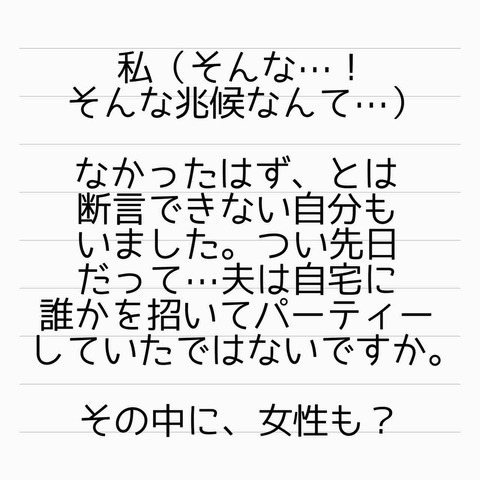 私（そんな…！
そんな兆候なんて…）
なかったはず、とは
断言できない自分も
いました。つい先日
だって…夫は自宅に
誰かを招いてパーティー
していたではないですか。
その中に、女性も？